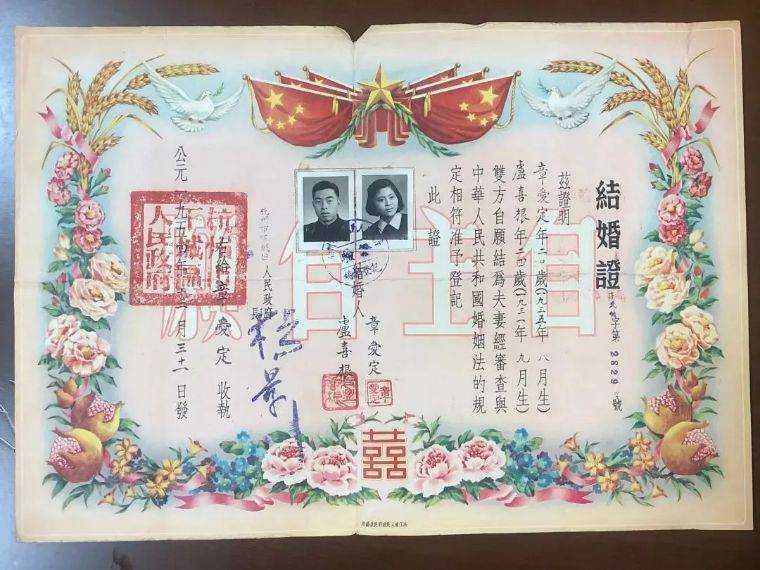 結婚證
字第2829號
茲證明
章愛定年二十歲(一九三五年八月生)
盧喜根年二四歲(一九三一年九月生)
雙方自願結爲夫妻經審查與
中華人民共和國婚姻法的規
定相符准予登記
此證
結婚人
章愛定
盧喜根
人民政府
長
右給章愛定收執
公元一九五四年
月三十一日發
人民政府
自主自願
囍